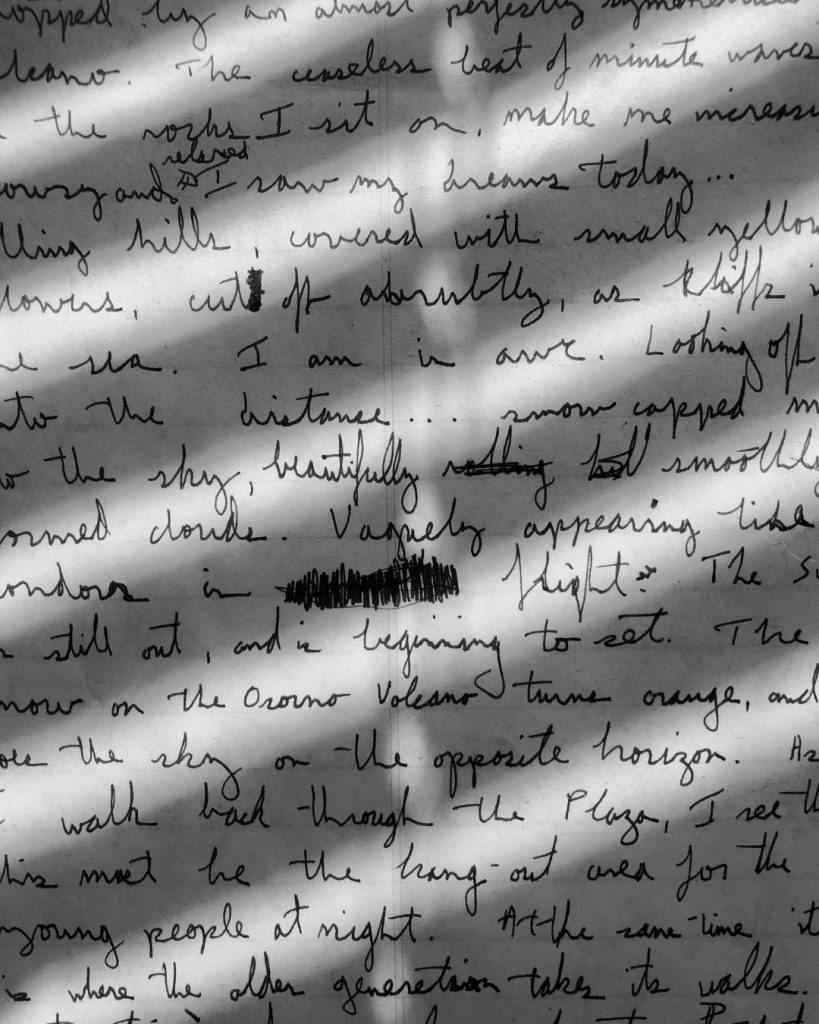 by an almost perfectly
The ceaseless beat of minute waves
the rocks I sit on, make me
relaxed
and I saw my dreams today...
hills, covered with small
cut off abrubtly, as kliffs
sea. I am in awe. Looking off
the distance... snow capped
the sky, beautifully rolling smoothly
clouds. Vaguely appearing like
in flight. The
still out, and is beginning to set. The
on the Osorno Volcano turns orange, and
the sky on the opposite horizon. As
walk back through the Plaza, I see
must be the hang-out area for the
young people at night. At the same time it
is where the older generation takes its walks.